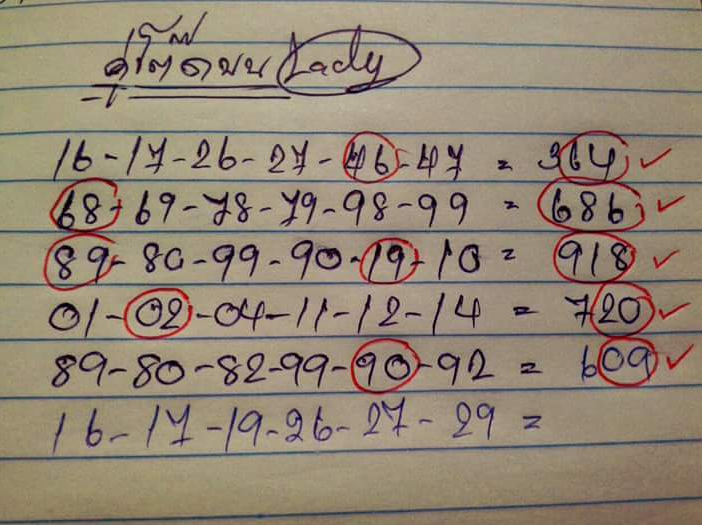 คู่โต๊ดบน Lady
16-17-26-27-46-47 = 364
68-69-78-79-98-99 = 686
89-80-99-90-19-10 = 918
01-02-04-11-12-14 = 720
89-80-82-99-90-92 = 609
16-17-19-26-27-29 =